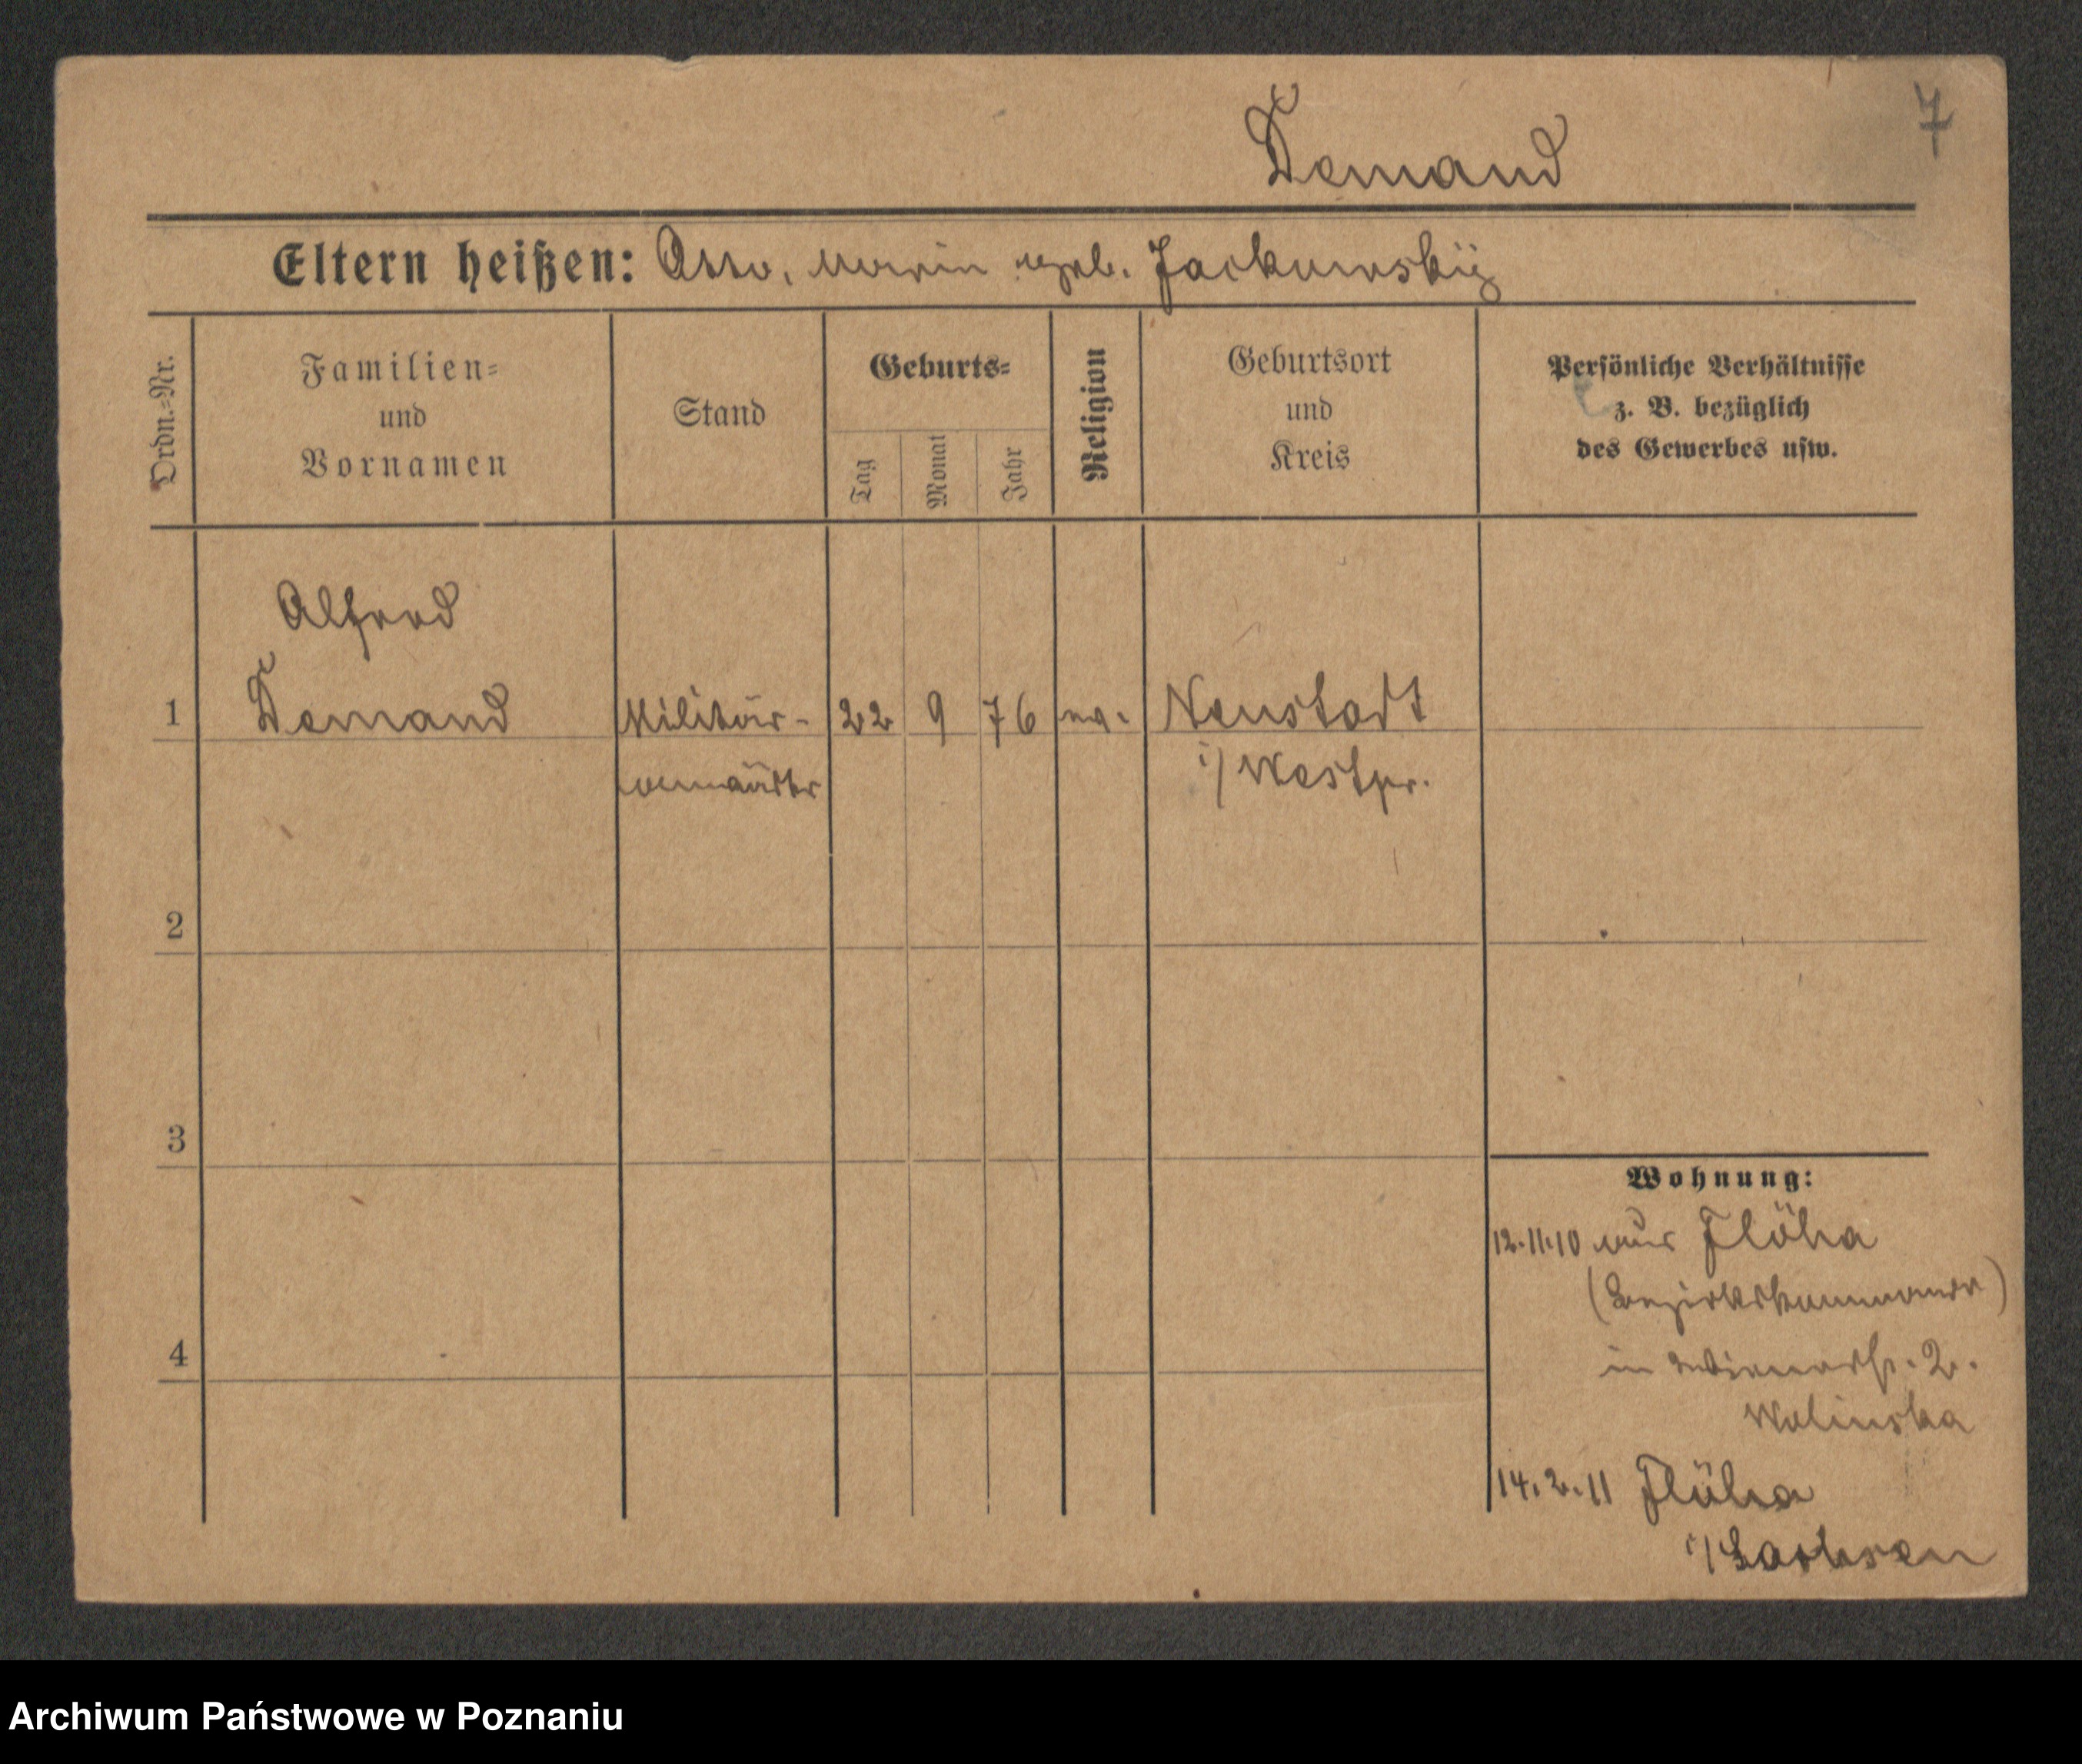 7
Demand
Eltern heißen: Otto, Marie geb. Jackowski
Ordn.=Nr.
Familien=
und
Vornamen
Stand
Geburts=
Tag
Monat
Jahr
Religion
Geburtsort
und
Kreis
Persönliche Verhältnisse
z. B. bezüglich
des Gewerbes usw.
Alfred
1 Demand Militär- 22 9 76 ev. Neustadt
anwärter i/ Westpr.
2
3
4
Wohnung:
12.11.10 aus Flöha
(Bezirkskommando)
in 2.
Wolinska
14.2.11 Flöha
i/Sachsen
Archiwum Państwowe w Poznaniu